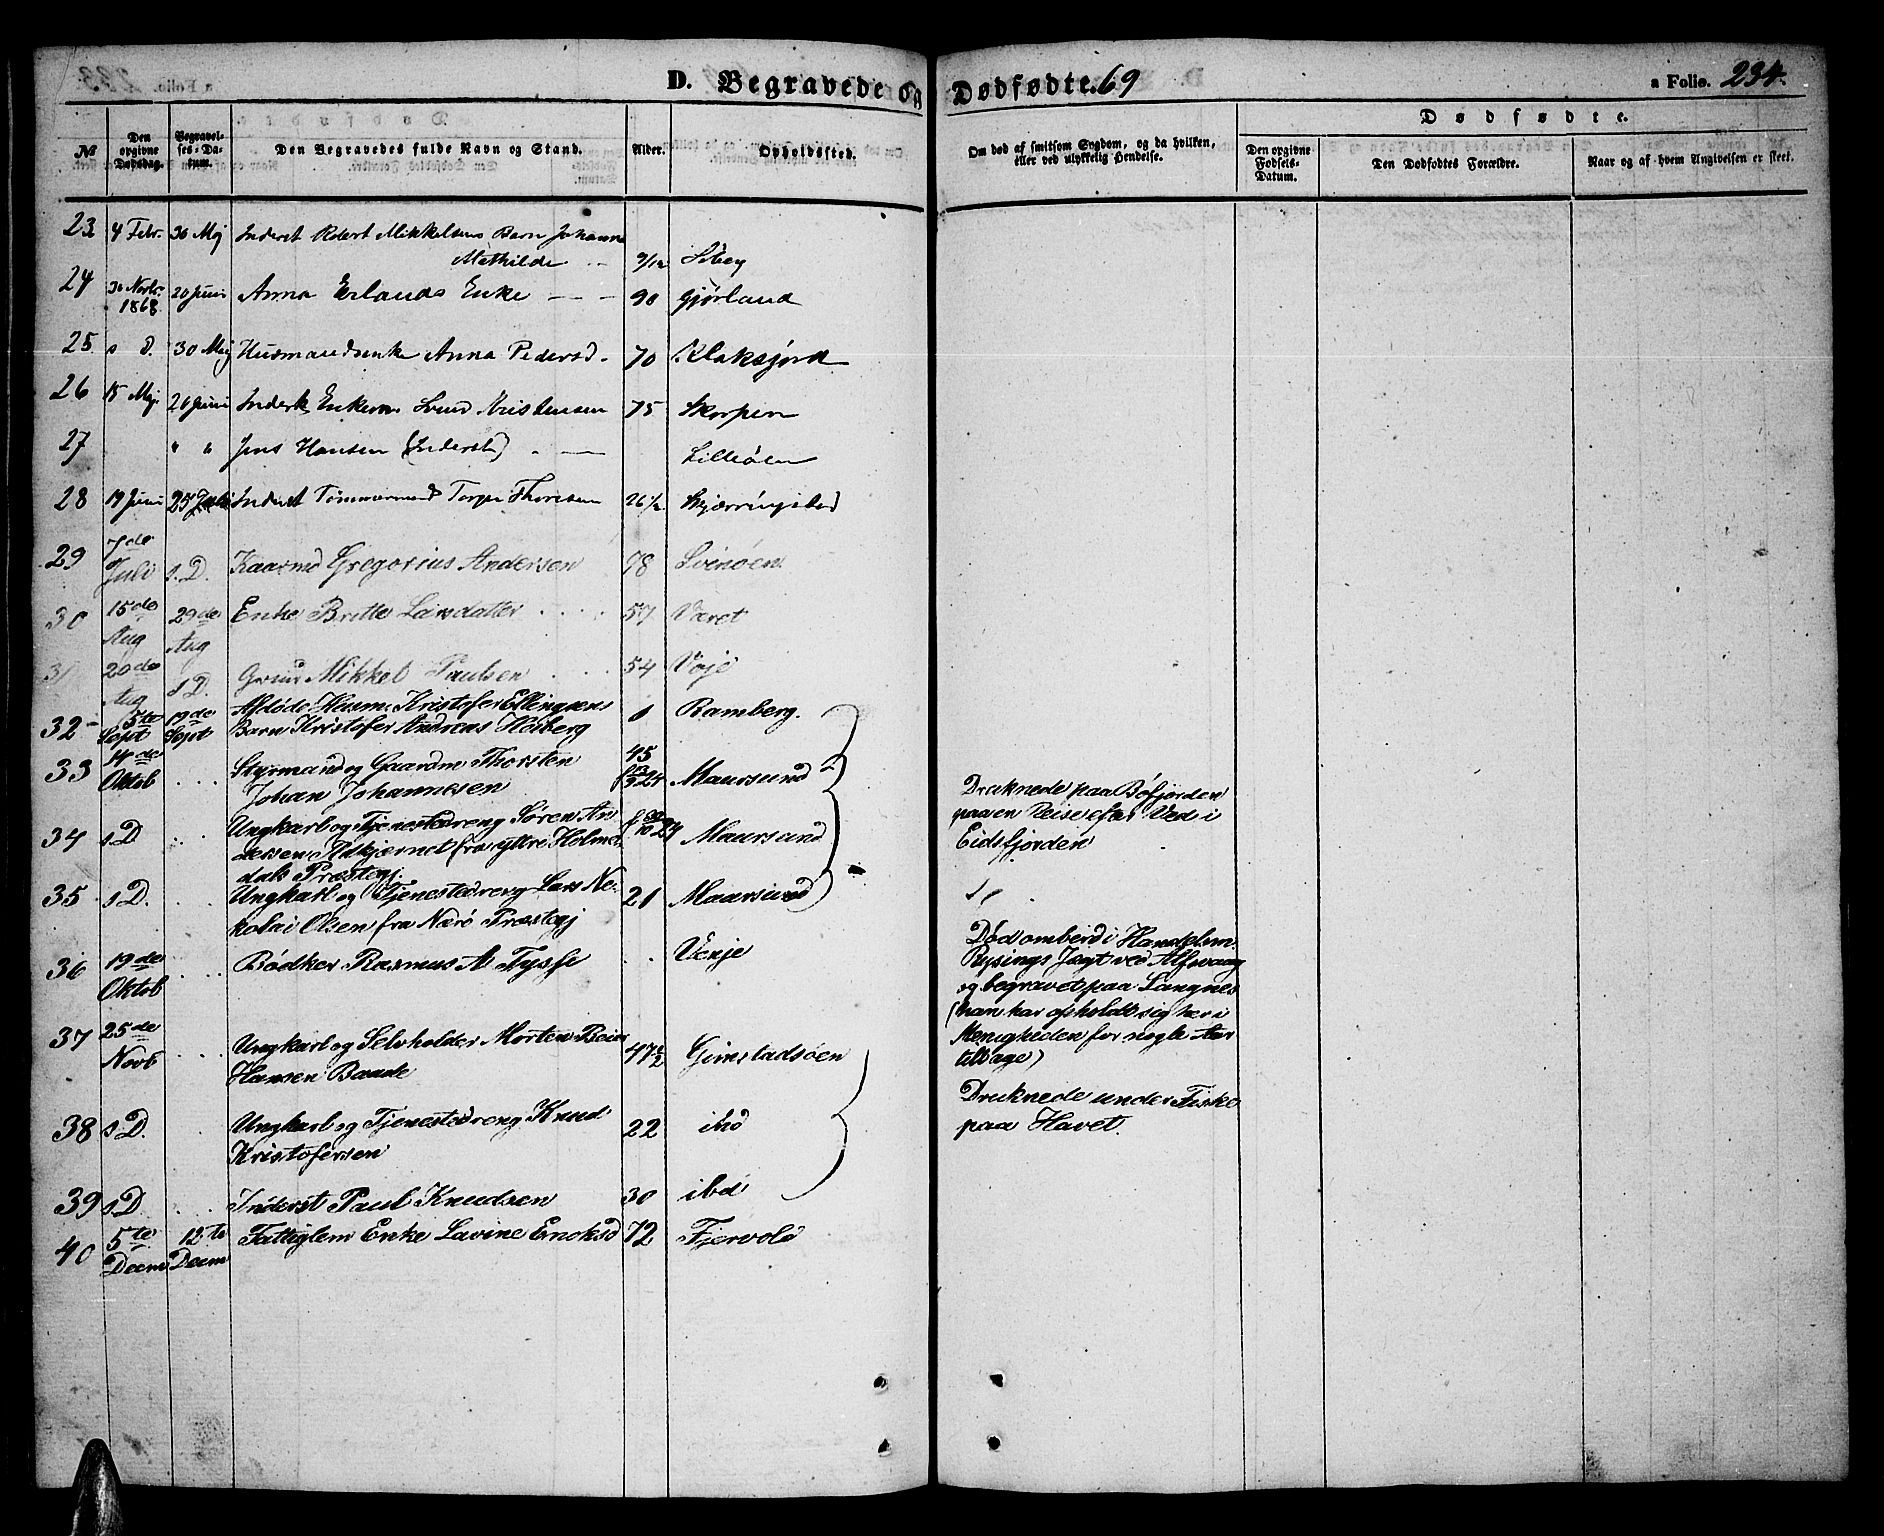 D. Begravede og Dødfødte. 69
a Folio. 234.
№
Den opgivne Dødsdag.
Begravelses-Datum.
Den Begravedes fulde Navn og Stand.
Alder.
Opholdssted.
Om død af smitsom Sygdom, og da hvilken, eller ved ulykkelig Hendelse.
Dødfødte.
Den opgivne Fødsels-Datum.
Den Dødfødtes Forældre.
Naar og af hvem Angivelsen er skeet.
23 4 Febr. 30 Mai Inderst Robert Mikkelsens Barn Johanna
Mathilde 9/12
24 30 Novbr. 1868 20 Juni Anna Erlands Enke 90 Gjørland
25 s. d. 30 Mai Husmandsenke Anna Pedersd. 70 Klaksjord
26 15 Mai 20 Juni Inderst, Enkem. 75 Skorpen
27 " " Jens Hansen (Inderst) Lilleøen
28 19 Juni 25 Juli Inderst Tømmermand Thoresen 26 1/2 Skjærringstad
29 7de Juli s. D. Kaarmd Gregorius Andersen 78 Svinøen
30 15de Aug 29de Aug Enke Britte Larsdatter 57 Været
31 20de Aug s D. Mikkel Paulsen 54 Voje
32 5te Sept 19de Sept Afdøde Husm. Kristofer Ellingsens
Barn Kristofer Andreas Heiberg 1 Ramberg.
33 4de Oktob Styrmand og Gaardm Thorsten
Johan Johannesen 45 Maursund
34 s D Ungkarl og Tjenestedreng Søren An
dersen fra yttre Holme
dals Præstegj. Maursund
35 s D. Ungkarl og Tjenestedreng Lars Ne-
kolai Olsen fra Nærø Præstegj 21 Maursund
36 19de Oktob Bødker Rasmus M Tysse Venje
37 25de Novb Ungkarl og Selvholder Morten
Hansen Baade 47 1/2 Gimstadsøen
38 s D. Ungkarl og Tjenestedreng Knud
Kristofersen 22 ibd
39 s D. Inderst Paul Knudsen 30 ibd
40 5te Decm 12te Decm Fattiglem Enke Lavine Enoksd 72 Fjervold
Druknede paa Bøfjorden
paa en Reise efter Ved i
Eidsfjorden
Død ombord i Handelsm.
Rysings Jagt ved Alfsvaag
og begravet paa Langnes
(han har opholdt sig her i
Menigheden for nogle Aar
tilbage)
Druknede under Fiske
paa Havet.